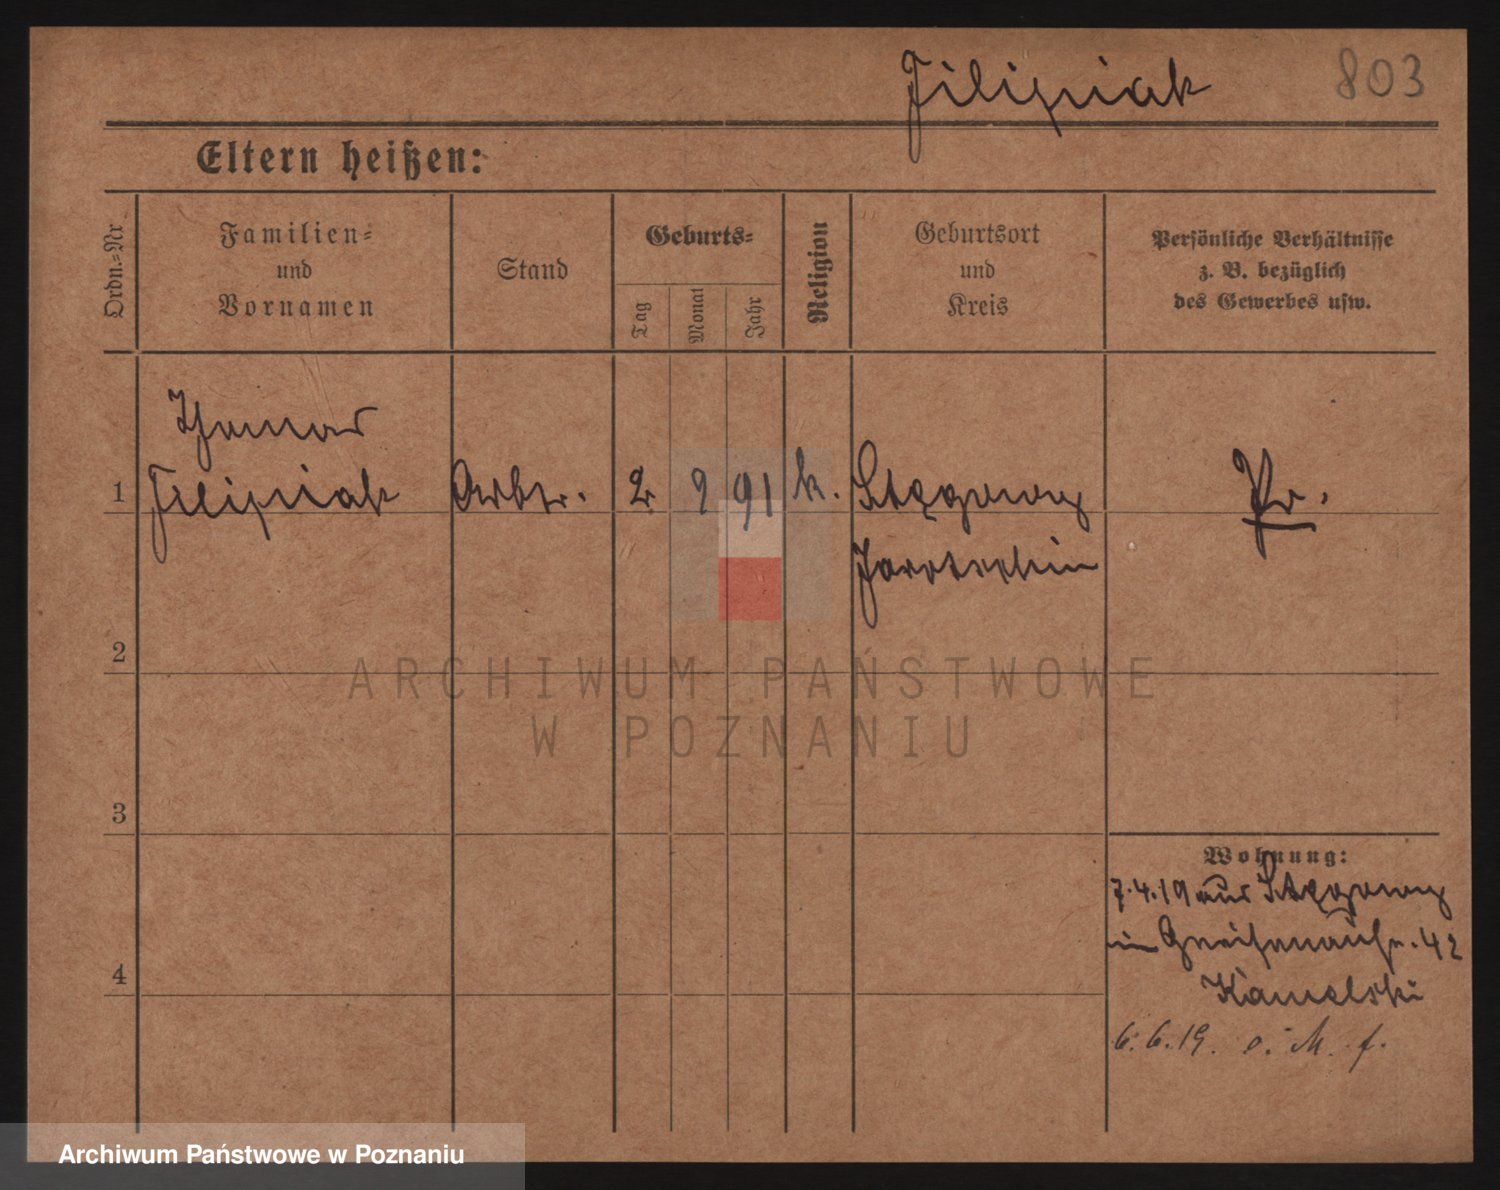 Filipiak 803
Eltern heißen:
Ordn.-Nr
Familien-
und
Vornamen
Stand
Geburts-
Tag
Monat
Jahr
Religion
Geburtsort
und
Kreis
Persönliche Verhältnisse
z. B. bezüglich
des Gewerbes usw.
Thomas
1 Filipiak Arbtr. 2 9 91 k. Stęgowy Pr.
Jarotschin
2
ARCHIWUM PAŃSTWOWE
W POZNANIU
3
Wohnung:
7.4.19 aus Stęgowy
in Gneisenaustr. 42
4
Kamelski
6.6.19. o. M. f.
Archiwum Państwowe w Poznaniu